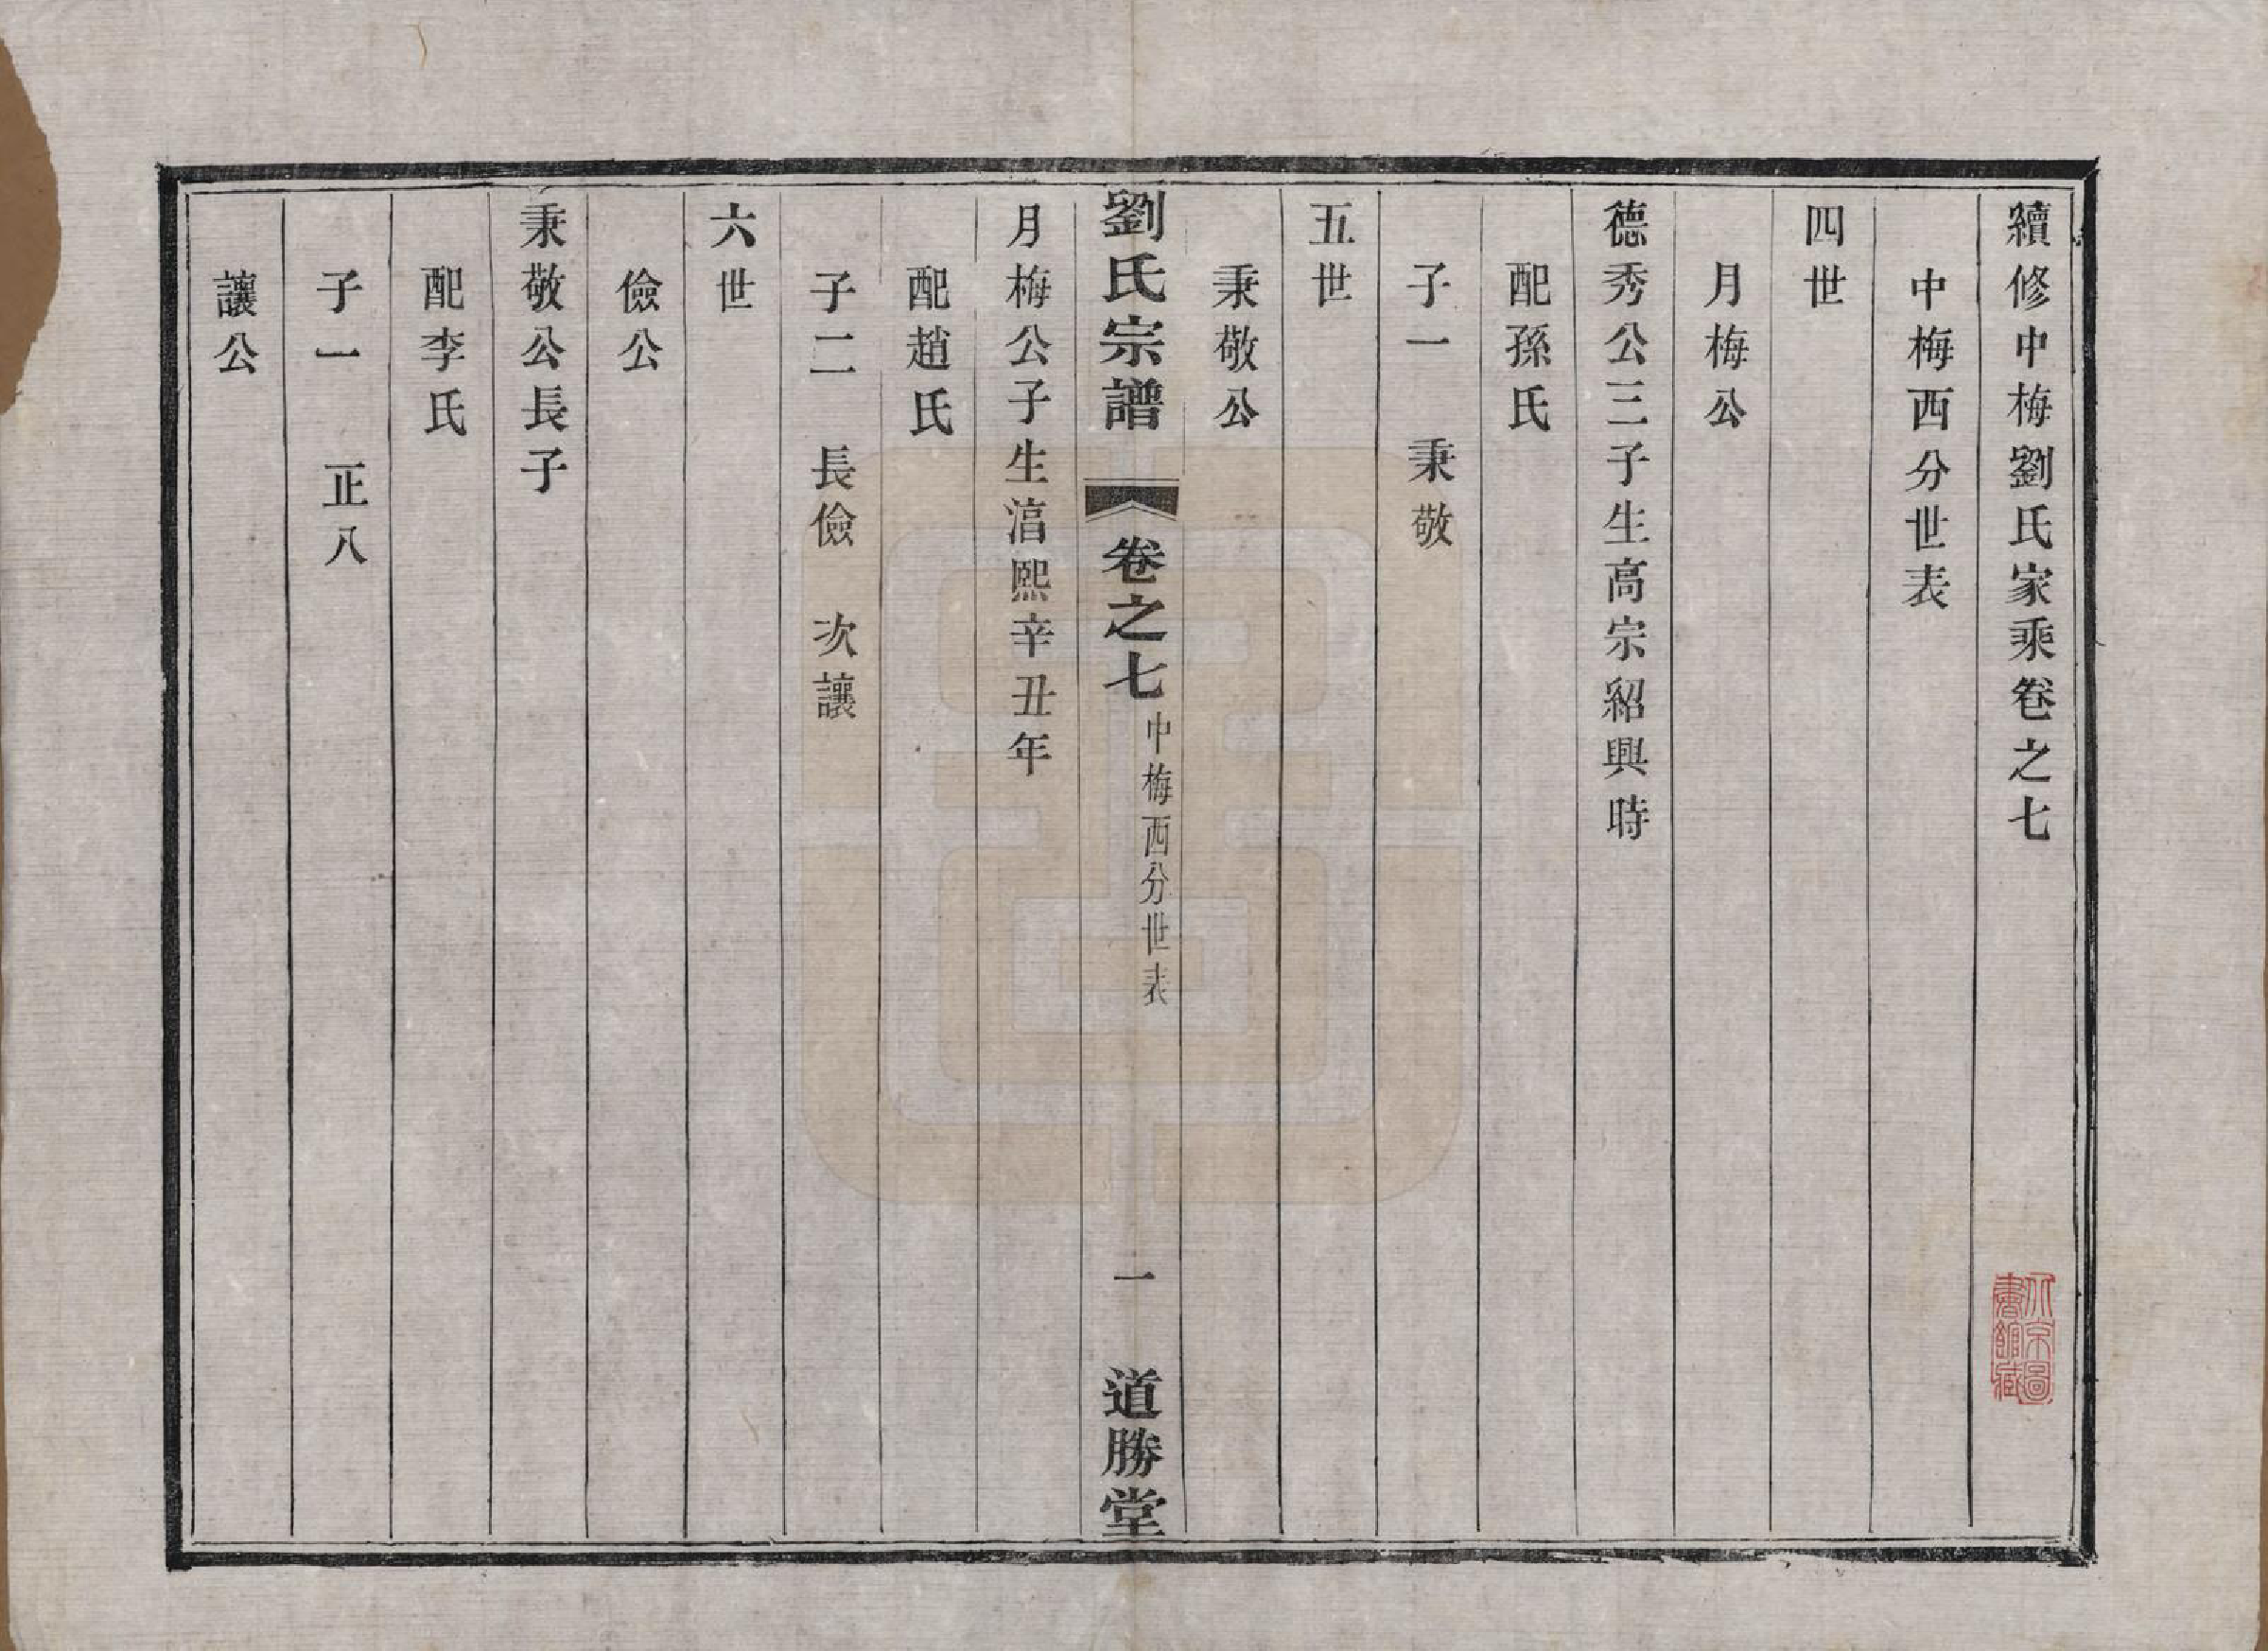 續修中梅劉氏家乘卷之七
中梅西分世表
四世
月梅公
德秀公三子生高宗紹興時
配孫氏
子一　秉敬
五世
秉敬公
劉氏宗譜　卷之七　中梅西分世表　一　道勝堂
月梅公子生湻熙辛丑年
配趙氏
子二　長儉　次讓
六世
儉公
秉敬公長子
配李氏
子一　正八
讓公
北京圖
書館藏